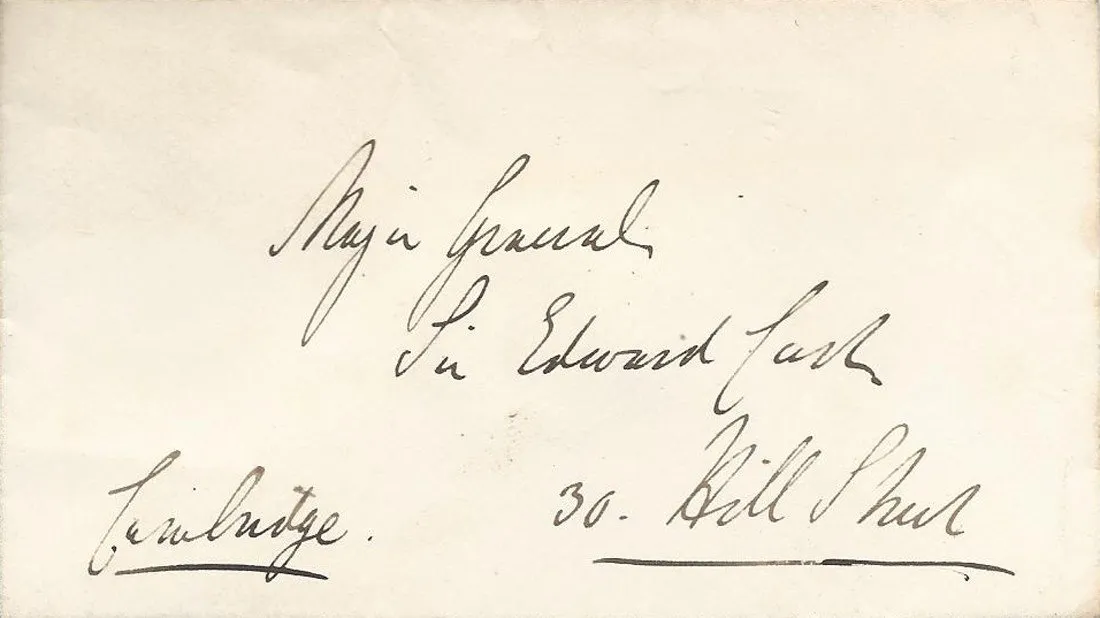 Major General
Sir Edward Cust
30. Hill Street
Cambridge.